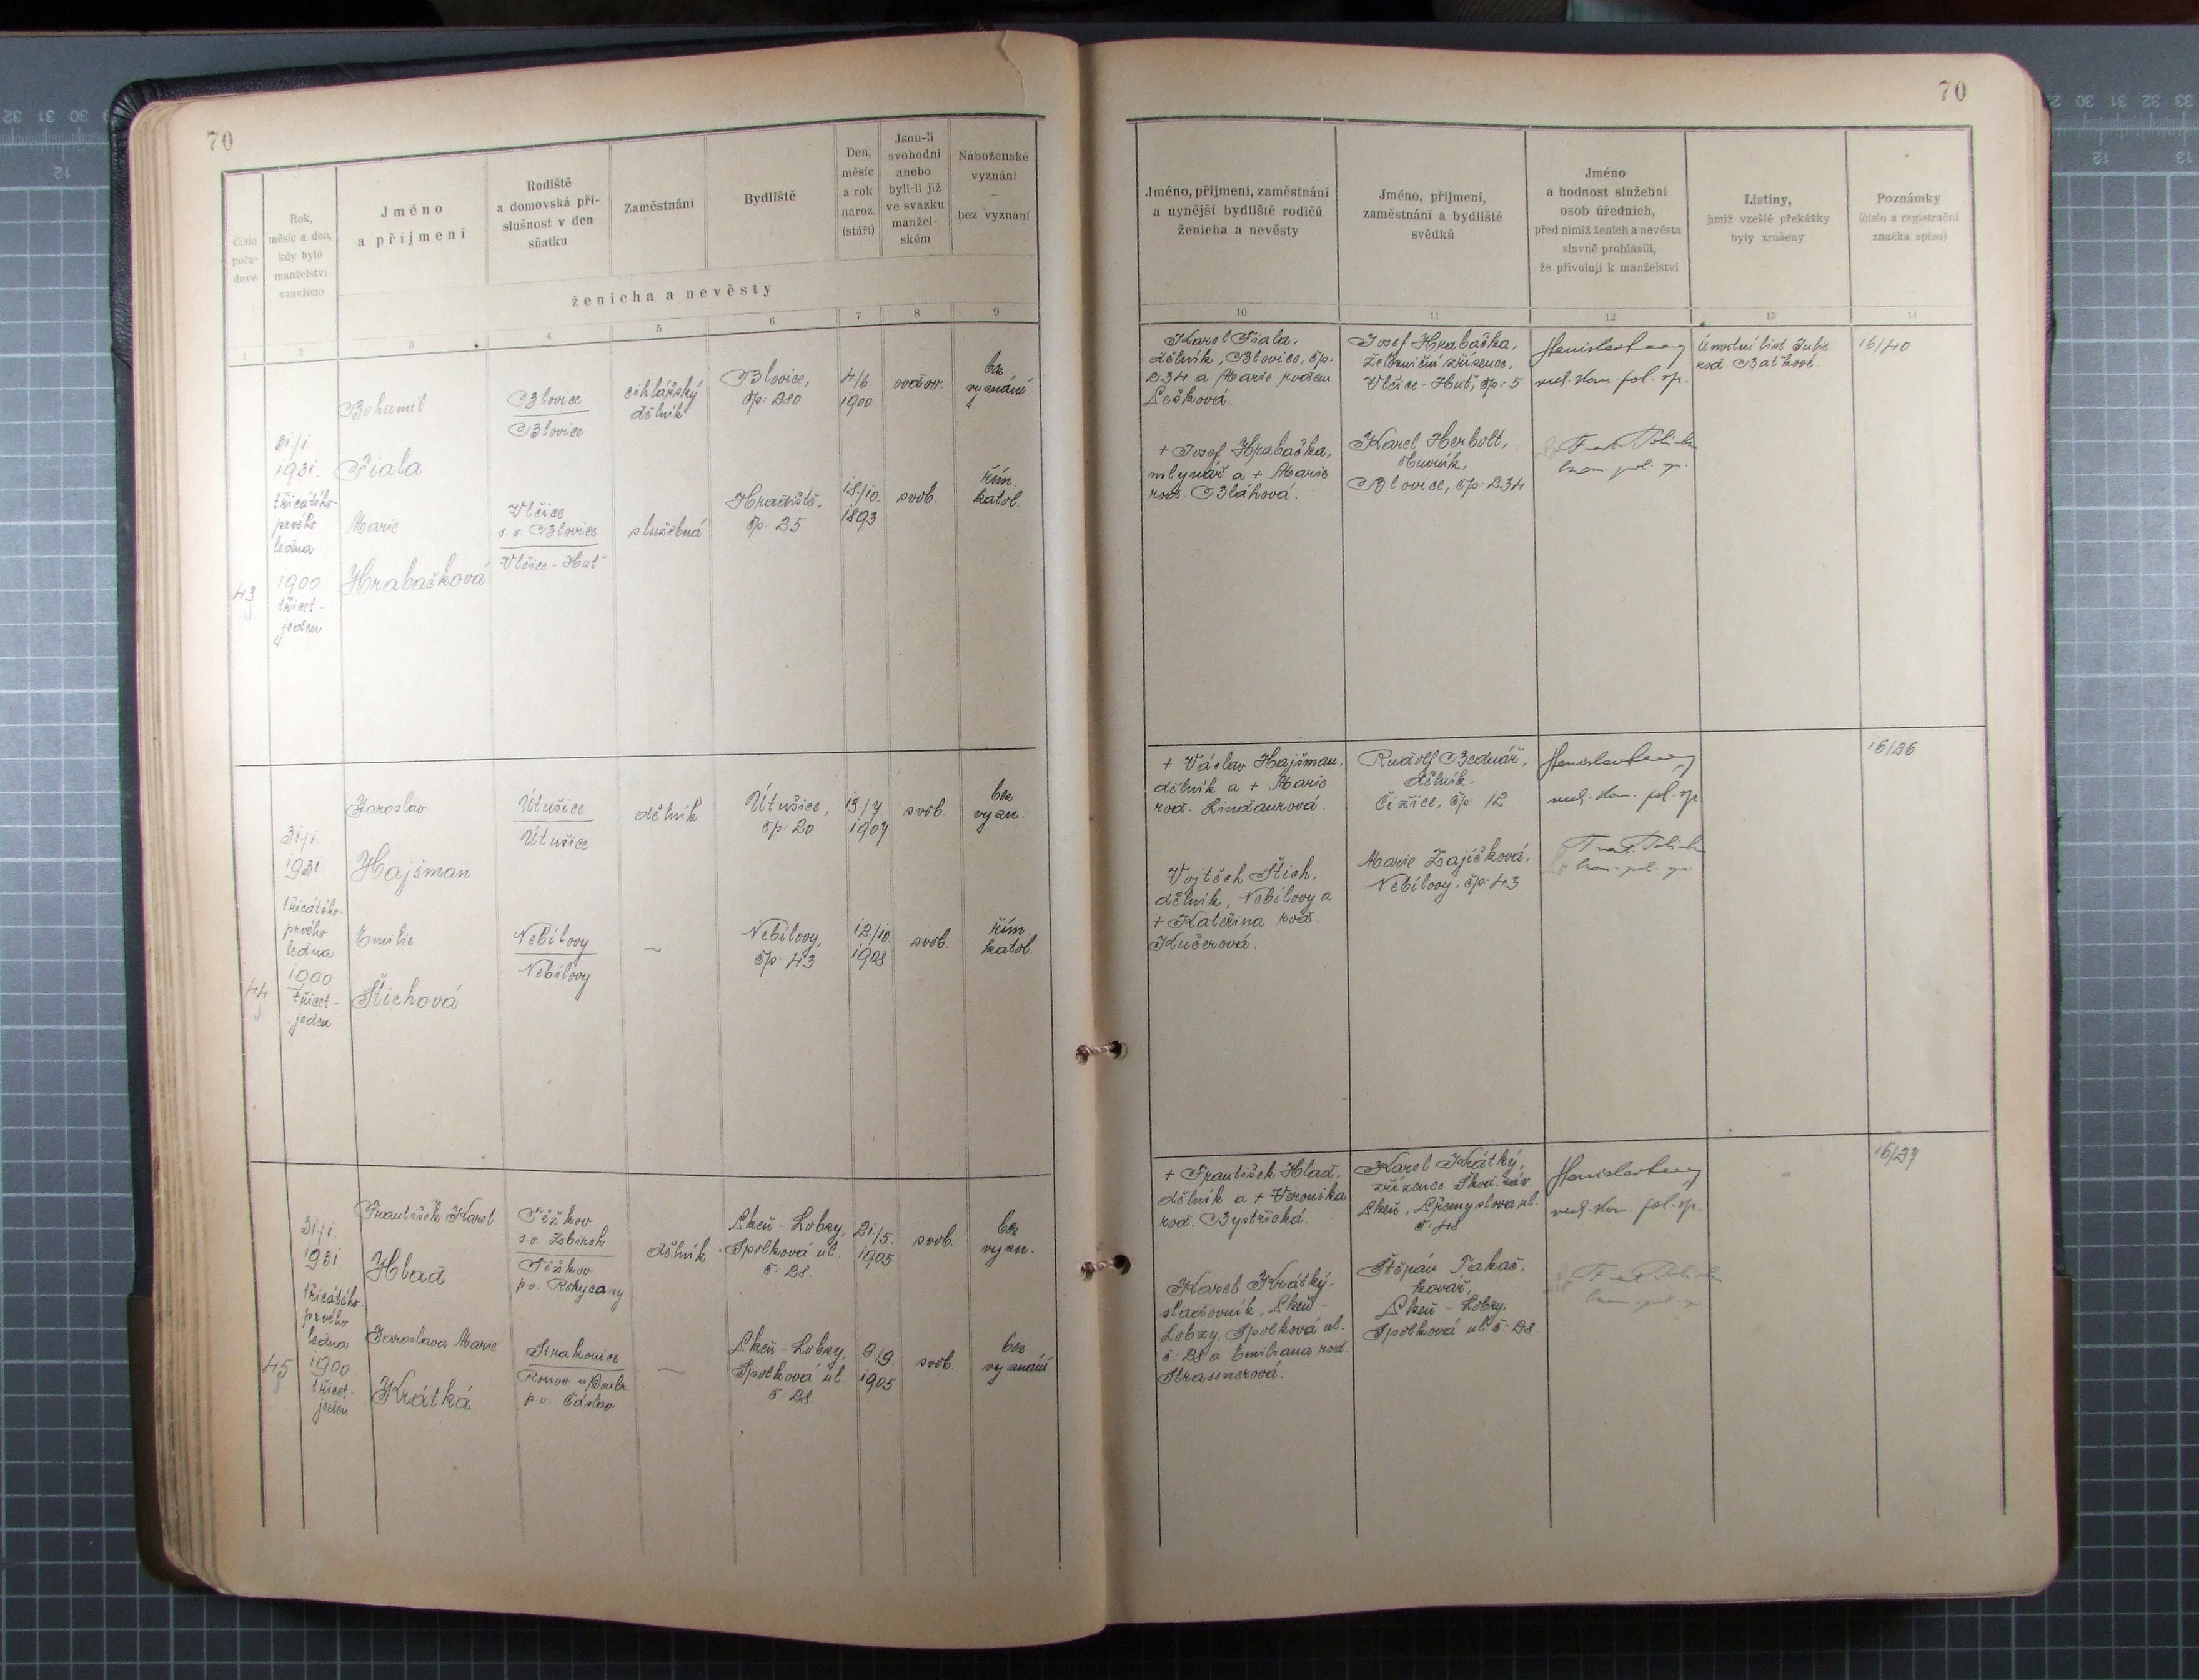 70
Číslo
pořa-
dové
Rok,
měsíc a den,
kdy bylo
manželství
uzavřeno
Jméno
a příjmení
Rodiště
a domovská pří-
slušnost v den
sňatku
Zaměstnání
Bydliště
Den,
měsíc
a rok
naroz.
(stáří)
Jsou-li
svobodni
anebo
byli-li již
ve svazku
manžel-
ském
Náboženské
vyznání
—
bez vyznání
ženicha a nevěsty
1
2
3
4
5
6
7
8
9
43
31/1.
1931.
třicátého-
prvého
ledna
1900
třicet-
jeden
Bohumil
Fiala
Marie
Hrabačková
Blovice
Blovice
Vlčice
s. o. Blovice
Vlčice - Huť
cihlářský
dělník
služebná
Blovice,
čp: 280
Hradiště,
čp: 25
4/6.
1900
18/10.
1893
ovdov.
svob.
bez
vyznání
řím.
katol.
44
31/1.
1931
třicátého-
prvého
ledna
1900
třicet-
jeden
Jaroslav
Hajšman
Emilie
Štichová
Útušice
Útušice
Nebílovy
Nebílovy
dělník
~
Útušice,
čp: 20
Nebílovy,
čp: 43
13/7.
1907
12/10.
1908
svob.
svob.
bez
vyzn.
řím.
katol.
45
31/1.
1931.
třicátého-
prvého
ledna
1900
třicet-
jeden
František Karel
Hlad
Jaroslava Marie
Krátká
Těškov
s. o. Zbiroh
Těškov
p. o. Rokycany
Strakonice
Ronov n/Doubr.
p. o. Čáslav
dělník
—
Plzeň - Lobzy,
Spolková ul.
č: 28.
Plzeň - Lobzy,
Spolková ul.
č: 28.
21/5.
1905
9/9.
1905
svob.
svob.
bez
vyzn.
bez
vyznání
70
Jméno, příjmení, zaměstnání
a nynější bydliště rodičů
ženicha a nevěsty
Jméno, příjmení,
zaměstnání a bydliště
svědků
Jméno
a hodnost služební
osob úředních,
před nimiž ženich a nevěsta
slavně prohlásili,
že přivolují k manželství
Listiny,
jimiž vzešlé překážky
byly zrušeny
Poznámky
(číslo a registrační
značka spisu)
10
11
12
13
14
Karel Fiala,
dělník, Blovice, čp.
234 a Marie rozen
Pešková.
+ Josef Hrabačka,
mlynář a + Marie
roz. Bláhová.
Josef Hrabačka,
železniční zřízenec,
Vlčice - Huť, čp: 5
Karel Herbolt,
Blovice, čp: 234
Úmrtní list Julie
rod. Baťkové.
16/40
+ Václav Hajšman,
dělník a + Marie
roz. Lindaurová.
Vojtěch Štich,
dělník, Nebílovy a
+ Kateřina roz.
Kučerová.
Rudolf Bednář,
dělník.
Čižice, čp: 12
Marie Zajíčková,
Nebílovy, čp: 43
16/26
+ František Hlad,
dělník a + Veronika
roz. Bystřická.
Karel Krátký,
sladovník, Plzeň -
Lobzy, Spolková ul.
č: 28 a Emiliana roz.
Strassnerová.
Karel Krátký,
zřízenec Škod. záv.
Plzeň, Přemyslova ul.
č: 48
Štěpán Takač,
kovář,
Plzeň - Lobzy,
Spolková ul. č: 28.
16/27